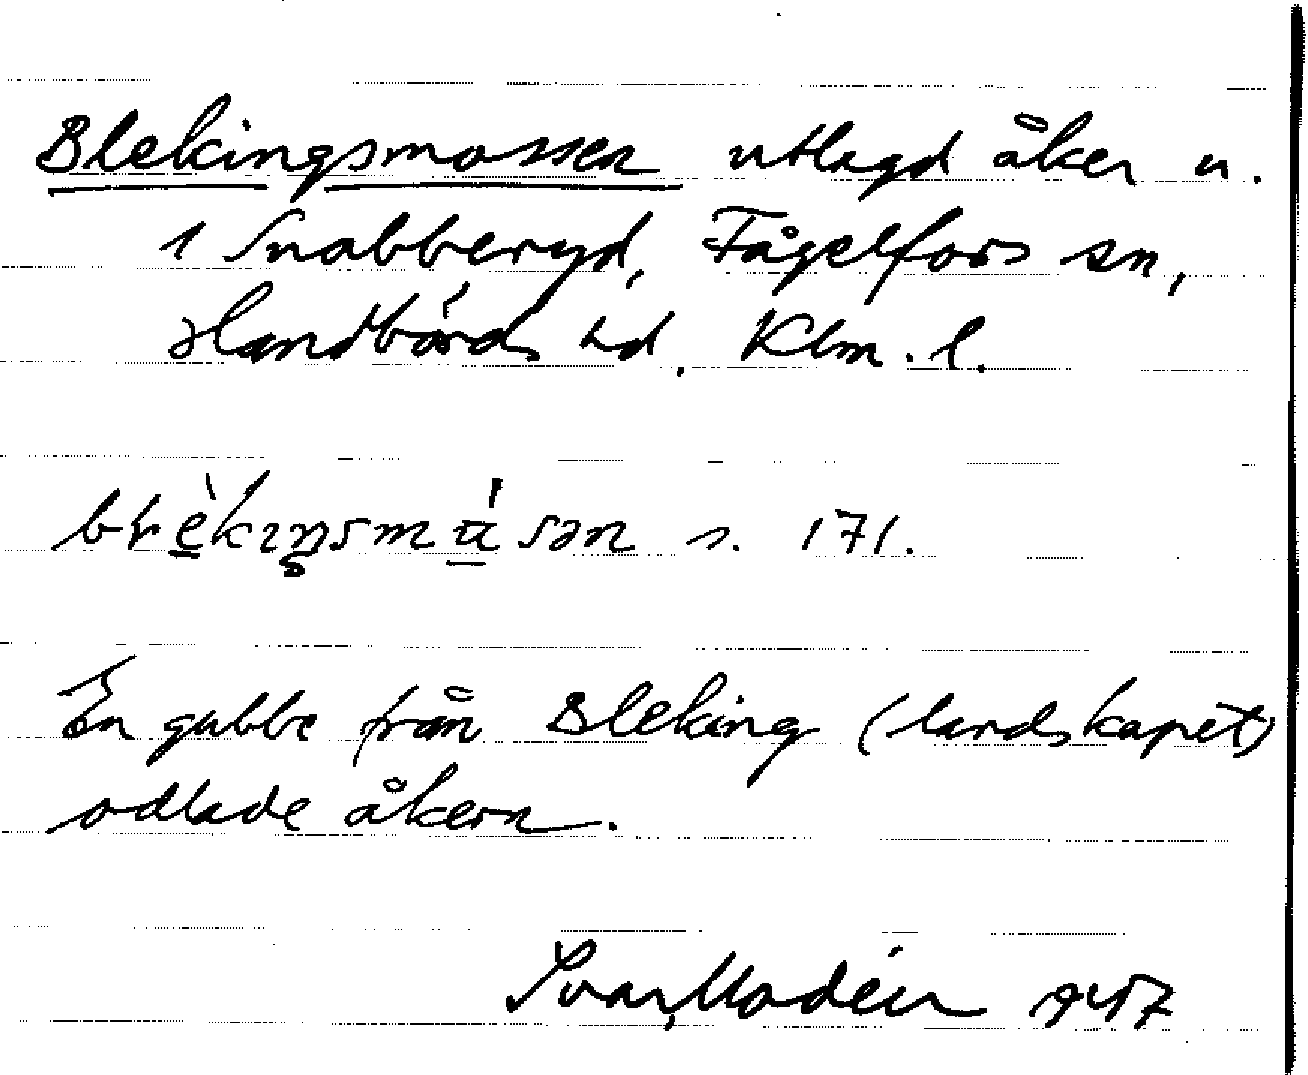 Blekingsmossen utlagd åker u.
1 Snabberyd, Fågelfors sn,
Handbörds hd, Klm. l.
s. 171.
En gubbe från Bleking (landskapet)
odlade åkern.
Ivar Modéer 1947